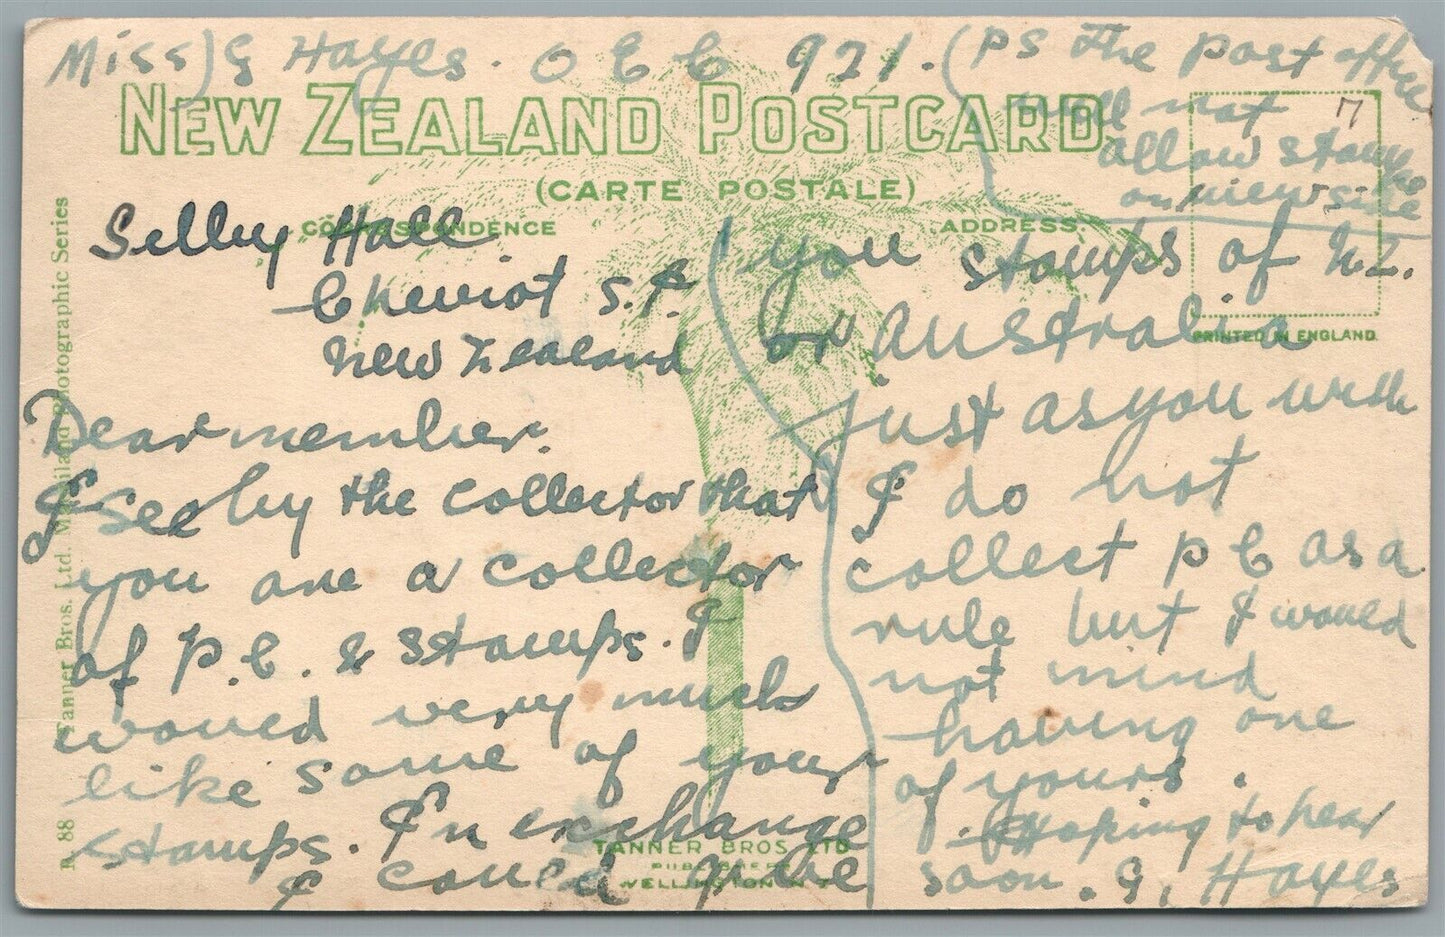 Miss) G Hayes. O E C 921.
(PS The post office
will not
allow stamps
on view side
NEW ZEALAND POSTCARD
(CARTE POSTALE)
CORRESPONDENCE
ADDRESS.
7
PRINTED IN ENGLAND.
Tanner Bros. Ltd. Maoriland Photographic Series
R 88
Selby Hall
Cheviot S.I.
New Zealand
Dear member.
I see by the collector that
you are a collector
of P.C. & stamps. I
would very much
like some of your
stamps. In exchange
I could give
you stamps of N.Z.
or Australia
just as you wish
I do not
collect P C as a
rule but I would
not mind
having one
of yours.
Hoping to hear
soon. G. Hayes
TANNER BROS LTD
PUBLISHERS
WELLINGTON N Z